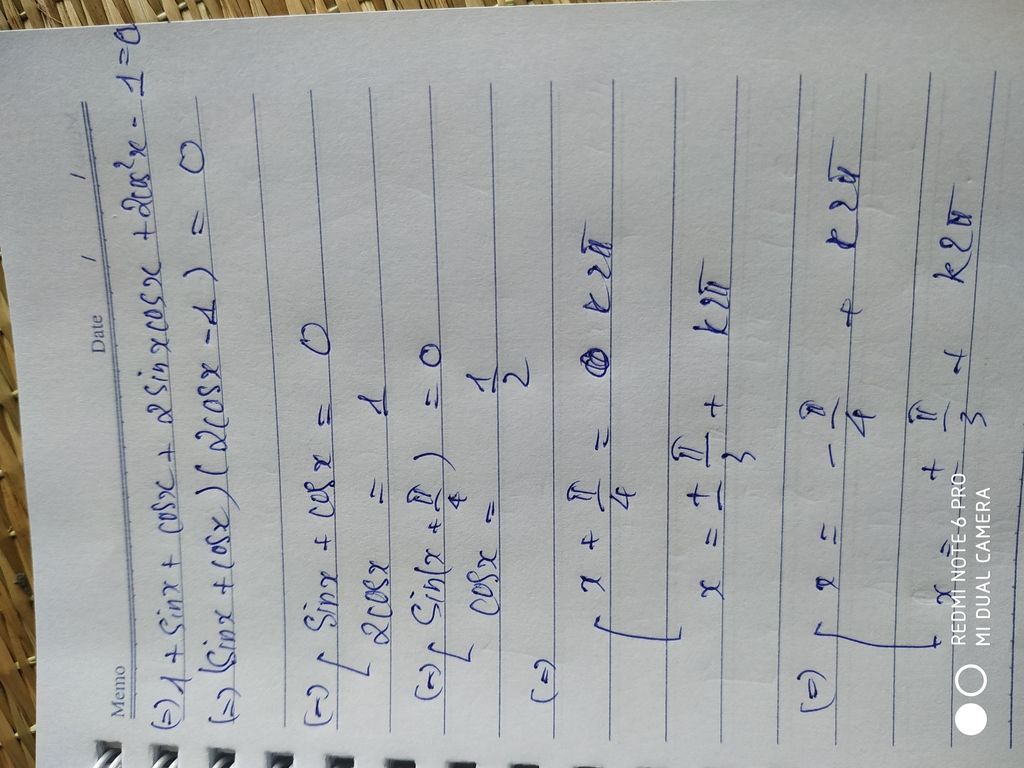 Memo
Date / /
(=) 1 + sinx + cosx + 2 sinxcosx + 2cos²x - 1 = 0
(=) (sinx + cosx) (2cosx - 1) = 0
(=) [ sinx + cosx = 0
2cosx = 1
(=) [ sin(x + π/4) = 0
cosx = 1/2
(=) [ x + π/4 = k2π
x = ± π/3 + k2π
(=) [ x = - π/4 + k2π
x = + π/3 + k2π
REDMI NOTE 6 PRO
MI DUAL CAMERA